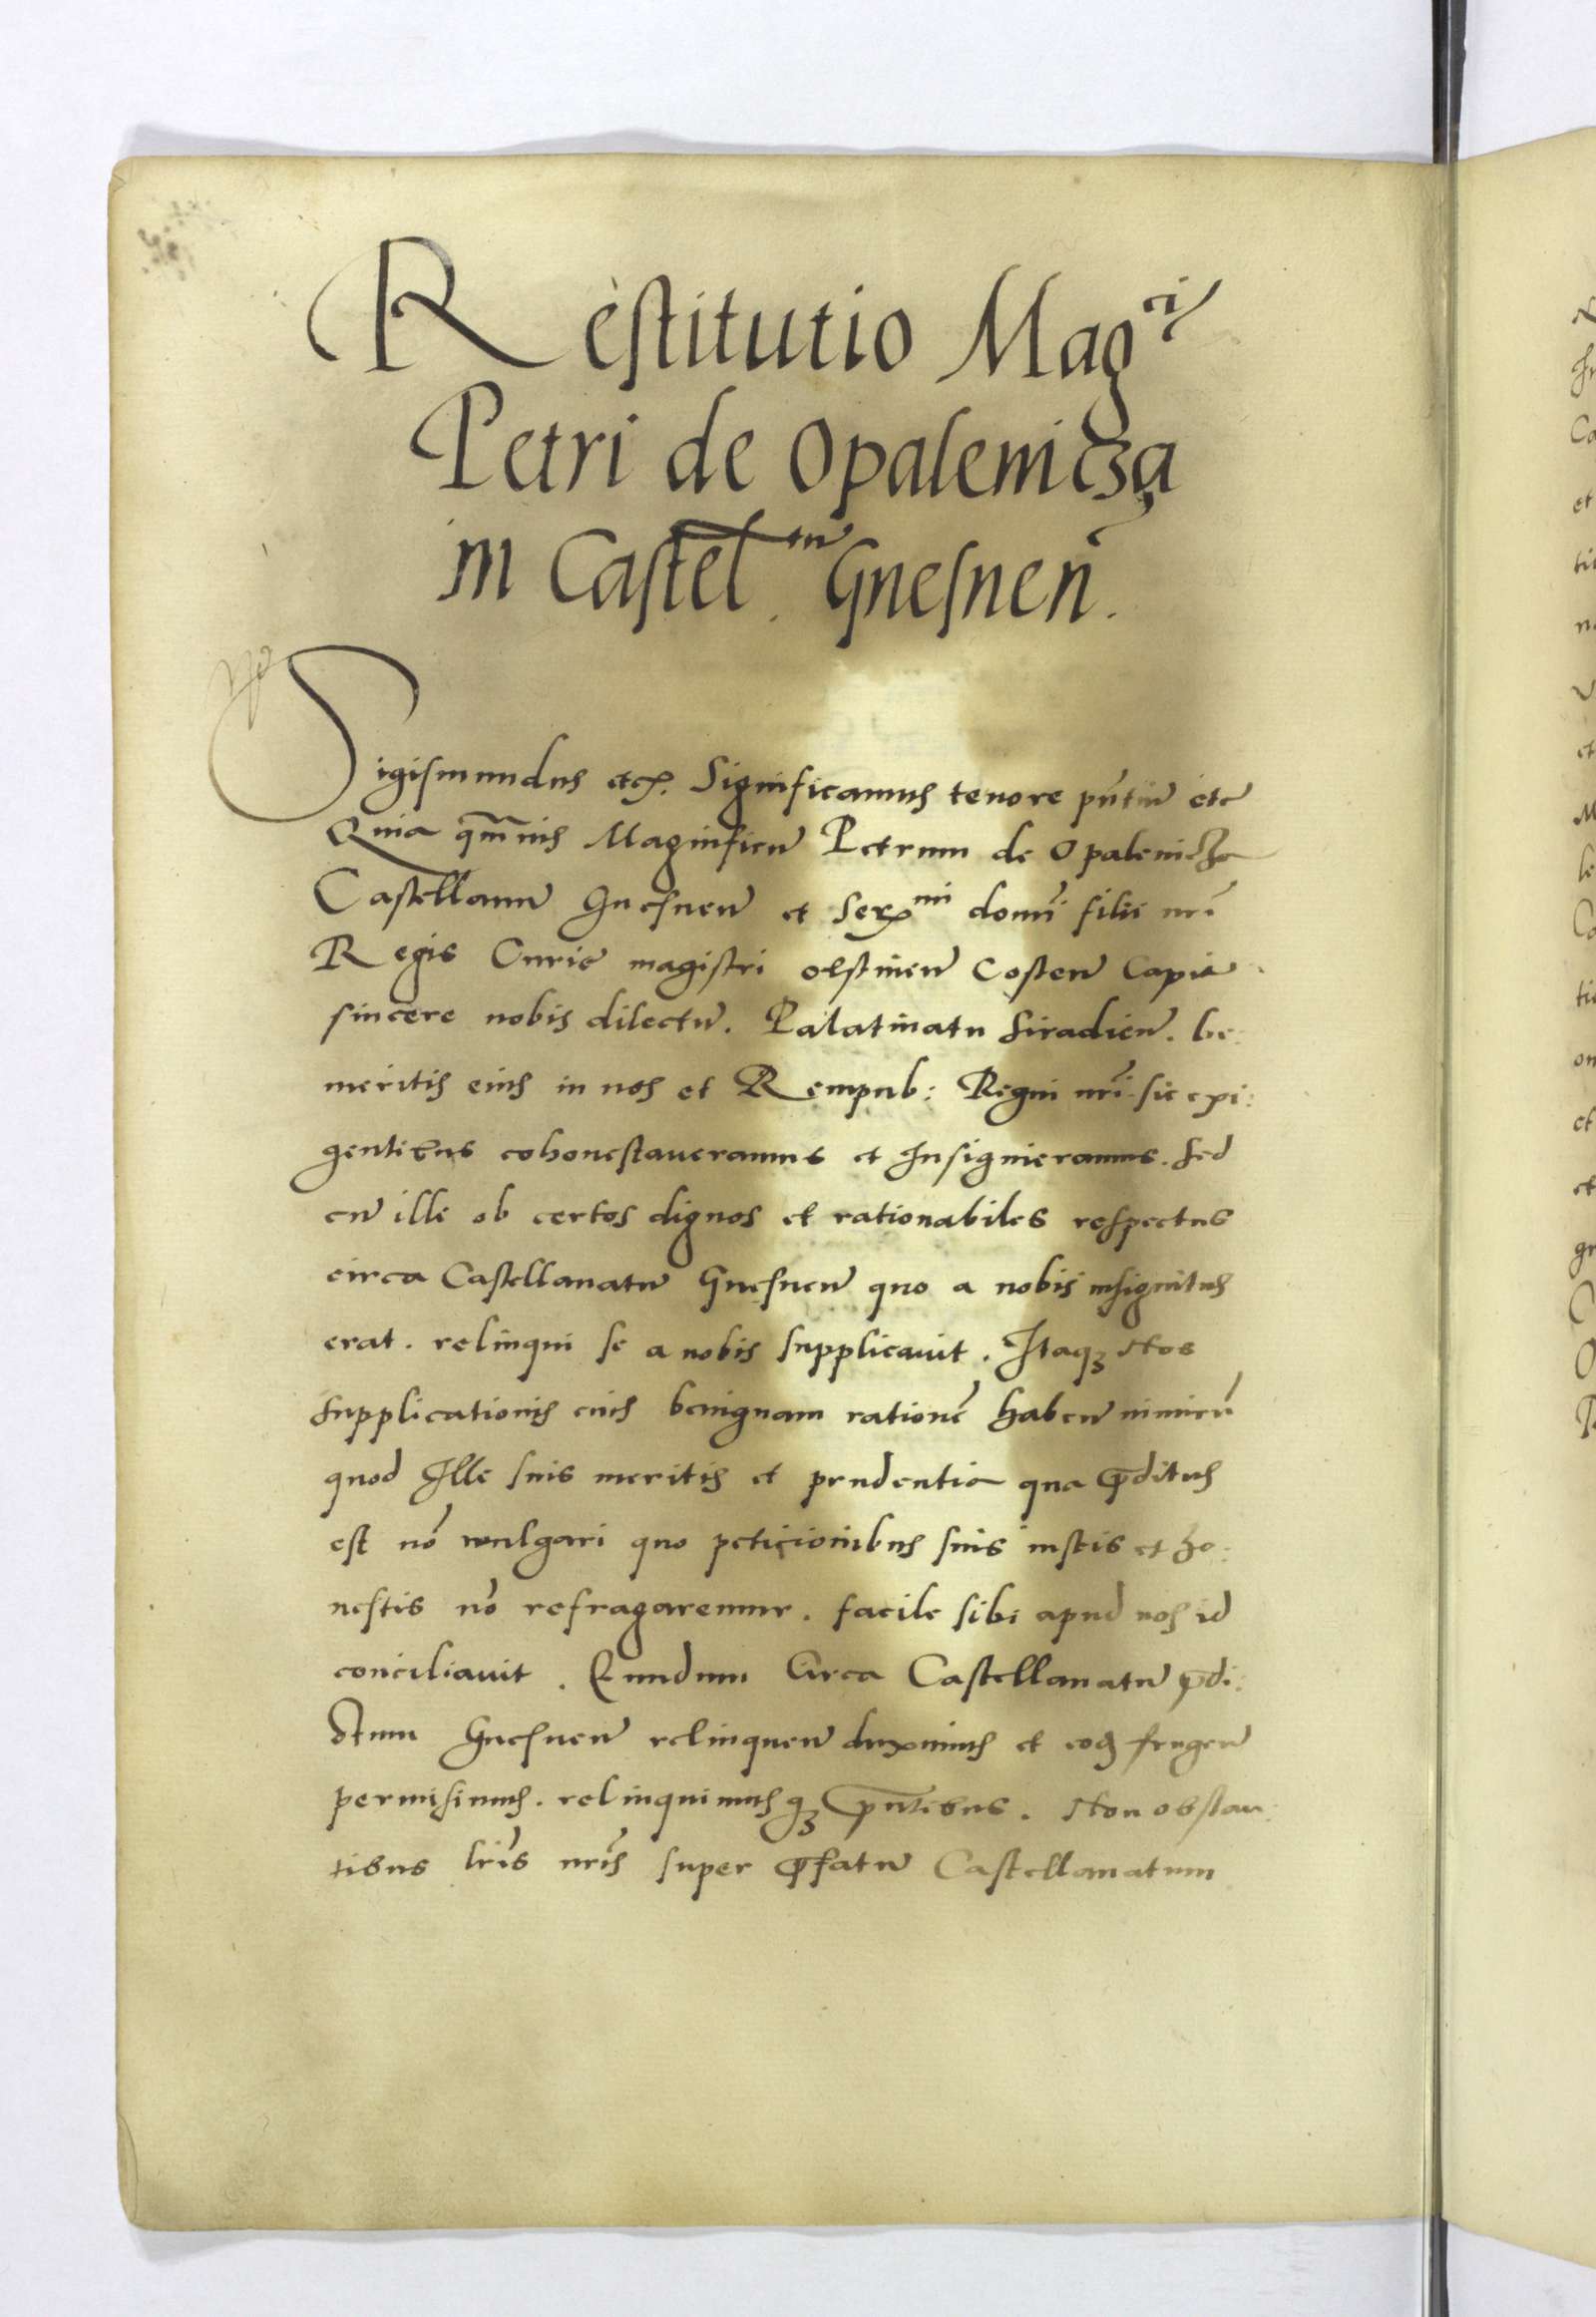 Restitutio Mag<sup>ci</sup>
Petri de Opalenicza
in Castel<sup>tu</sup>. Gnesnen̄.
Sigismundus etc. Significamus tenore pn̄tiu̅ etc
Quia qm̄vis Magnificu̅ Petrum de Opalenicza
Castellanu̅ Gnesnen̄ et Ser<sup>mi</sup> domi̅ filii nr̄i
Regis Curie magistri olstinen̄ Costen̄ Capit̄
sincere nobis dilectu̅. Palatinatu Siradien̄. be:
meritis eius in nos et Rempub: Regni nr̄i sic exi:
gentibus cohonestaveramus et Insignieramus. Sed
cu̅ ille ob certos dignos et rationabiles respectus
circa Castellanatu̅ Gnesnen̄ quo a nobis insignitus
erat. relinqui se a nobis supplicavit. Itaqꝫ Nos
Supplicationis eius benignam rationē haben̄ nimiru̅
quod Ille suis meritis et prudentia qua p̄ditus
est nō wulgari quo peticionibus suis iustis et ho:
nestis nō refragaremur. facile sibi apud nos id
conciliavit. Eundum Circa Castellanatu̅ p̄di:
ctum Gnesnen̄ relinquen̄ duximus et eoꝗ frugen̄
permisimus. relinquimusqꝫ pn̄tibus. Non obstan:
tibus lr̄is nr̄is super p̄fatu̅ Castellanatum